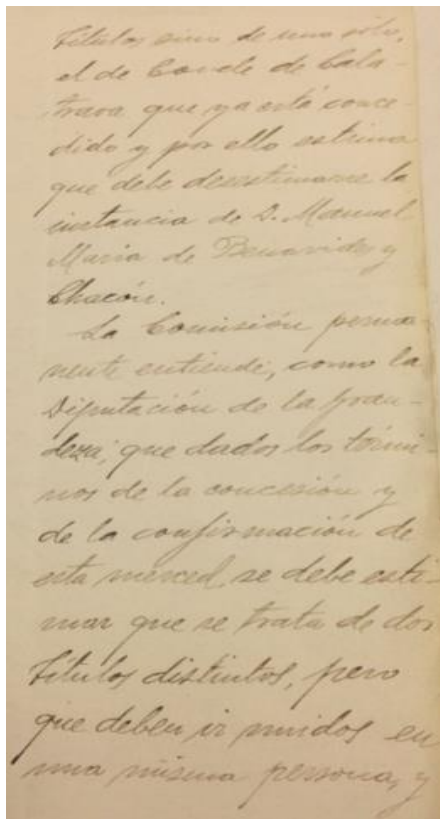 títulos sino de uno solo,
el de Conde de Cala-
trava que ya está conce-
dido y por ello estima
que debe desestimarse la
instancia de D. Manuel
María de Benavides y
Chacón.
La Comisión perma-
nente entiende, como la
Diputación de la Gran-
deza, que dados los térmi-
nos de la concesión y
de la confirmación de
esta merced, se debe esti-
mar que se trata de dos
títulos distintos, pero
que deben ir unidos en
una misma persona, y